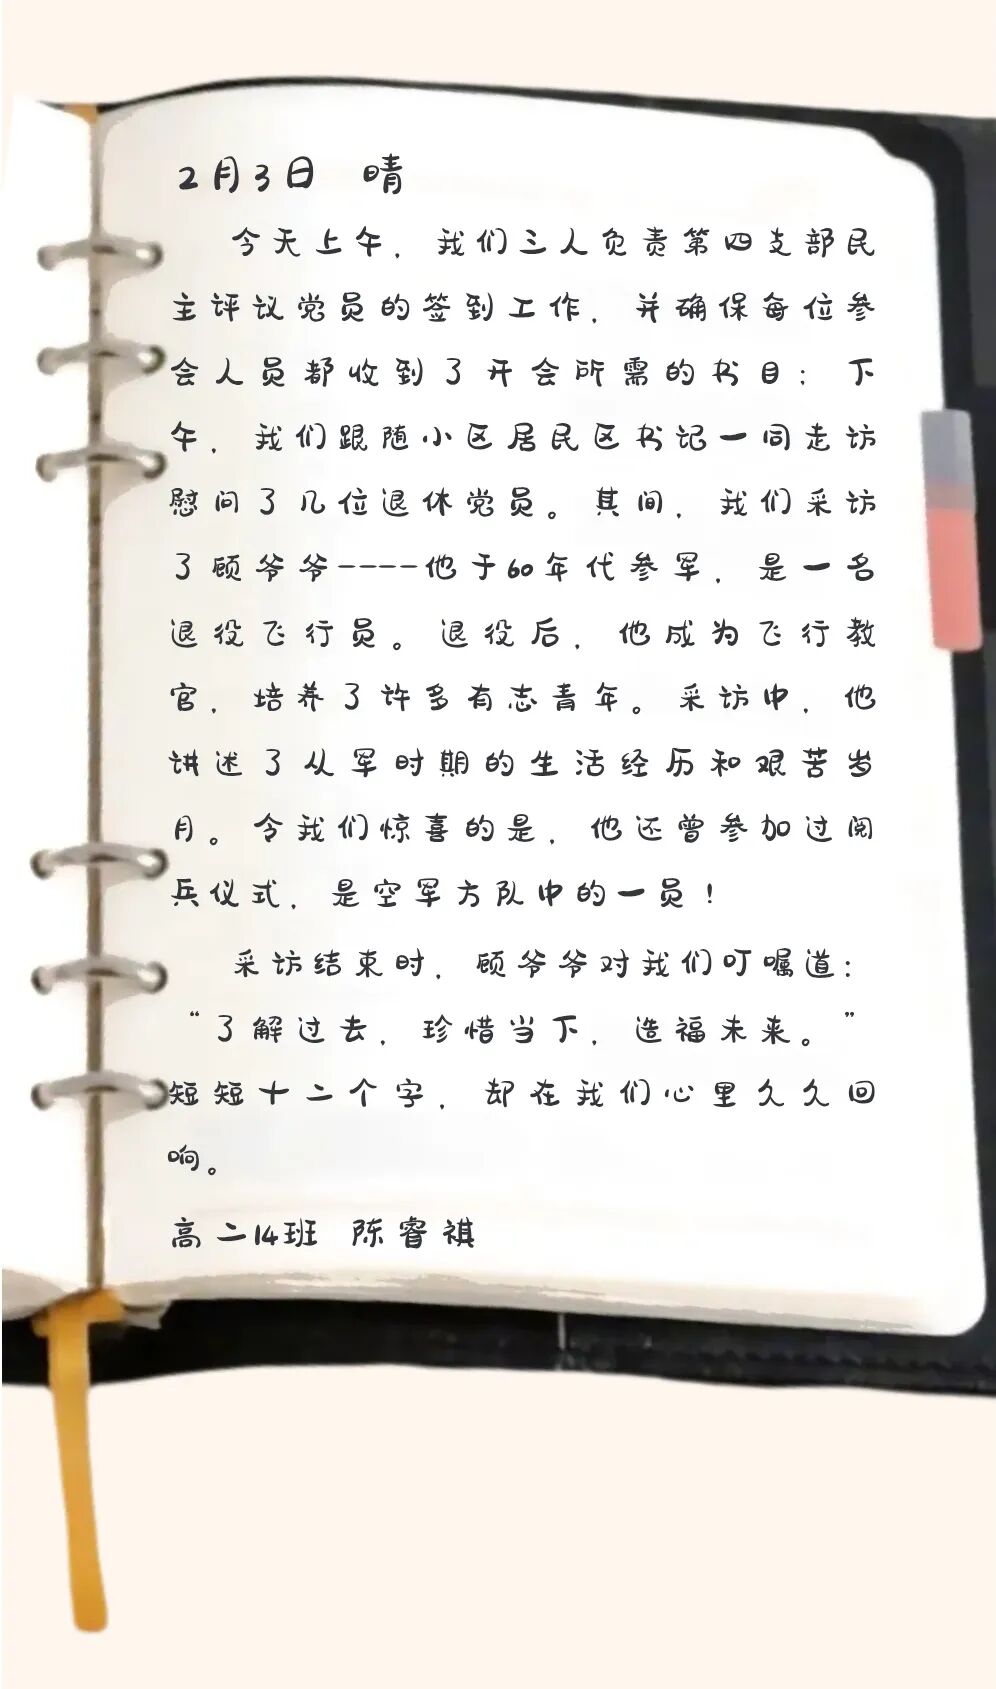 2月3日 晴
今天上午，我们三人负责第四支部民
主评议党员的签到工作，并确保每位参
会人员都收到了开会所需的书目；下
午，我们跟随小区居民区书记一同走访
慰问了几位退休党员。其间，我们采访
了顾爷爷----他于60年代参军，是一名
退役飞行员。退役后，他成为飞行教
官，培养了许多有志青年。采访中，他
讲述了从军时期的生活经历和艰苦岁
月。令我们惊喜的是，他还曾参加过阅
兵仪式，是空军方队中的一员！
采访结束时，顾爷爷对我们叮嘱道：
“了解过去，珍惜当下，造福未来。”
短短十二个字，却在我们心里久久回
响。
高二14班 陈睿祺